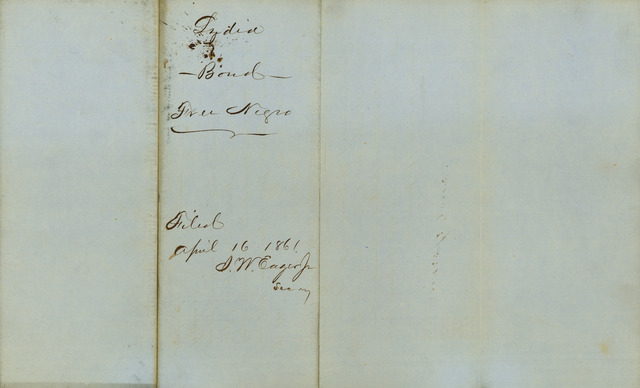 Lydia
— Bond —
Free Negro
Filed
April 16 1861
S. W. Eager Jr